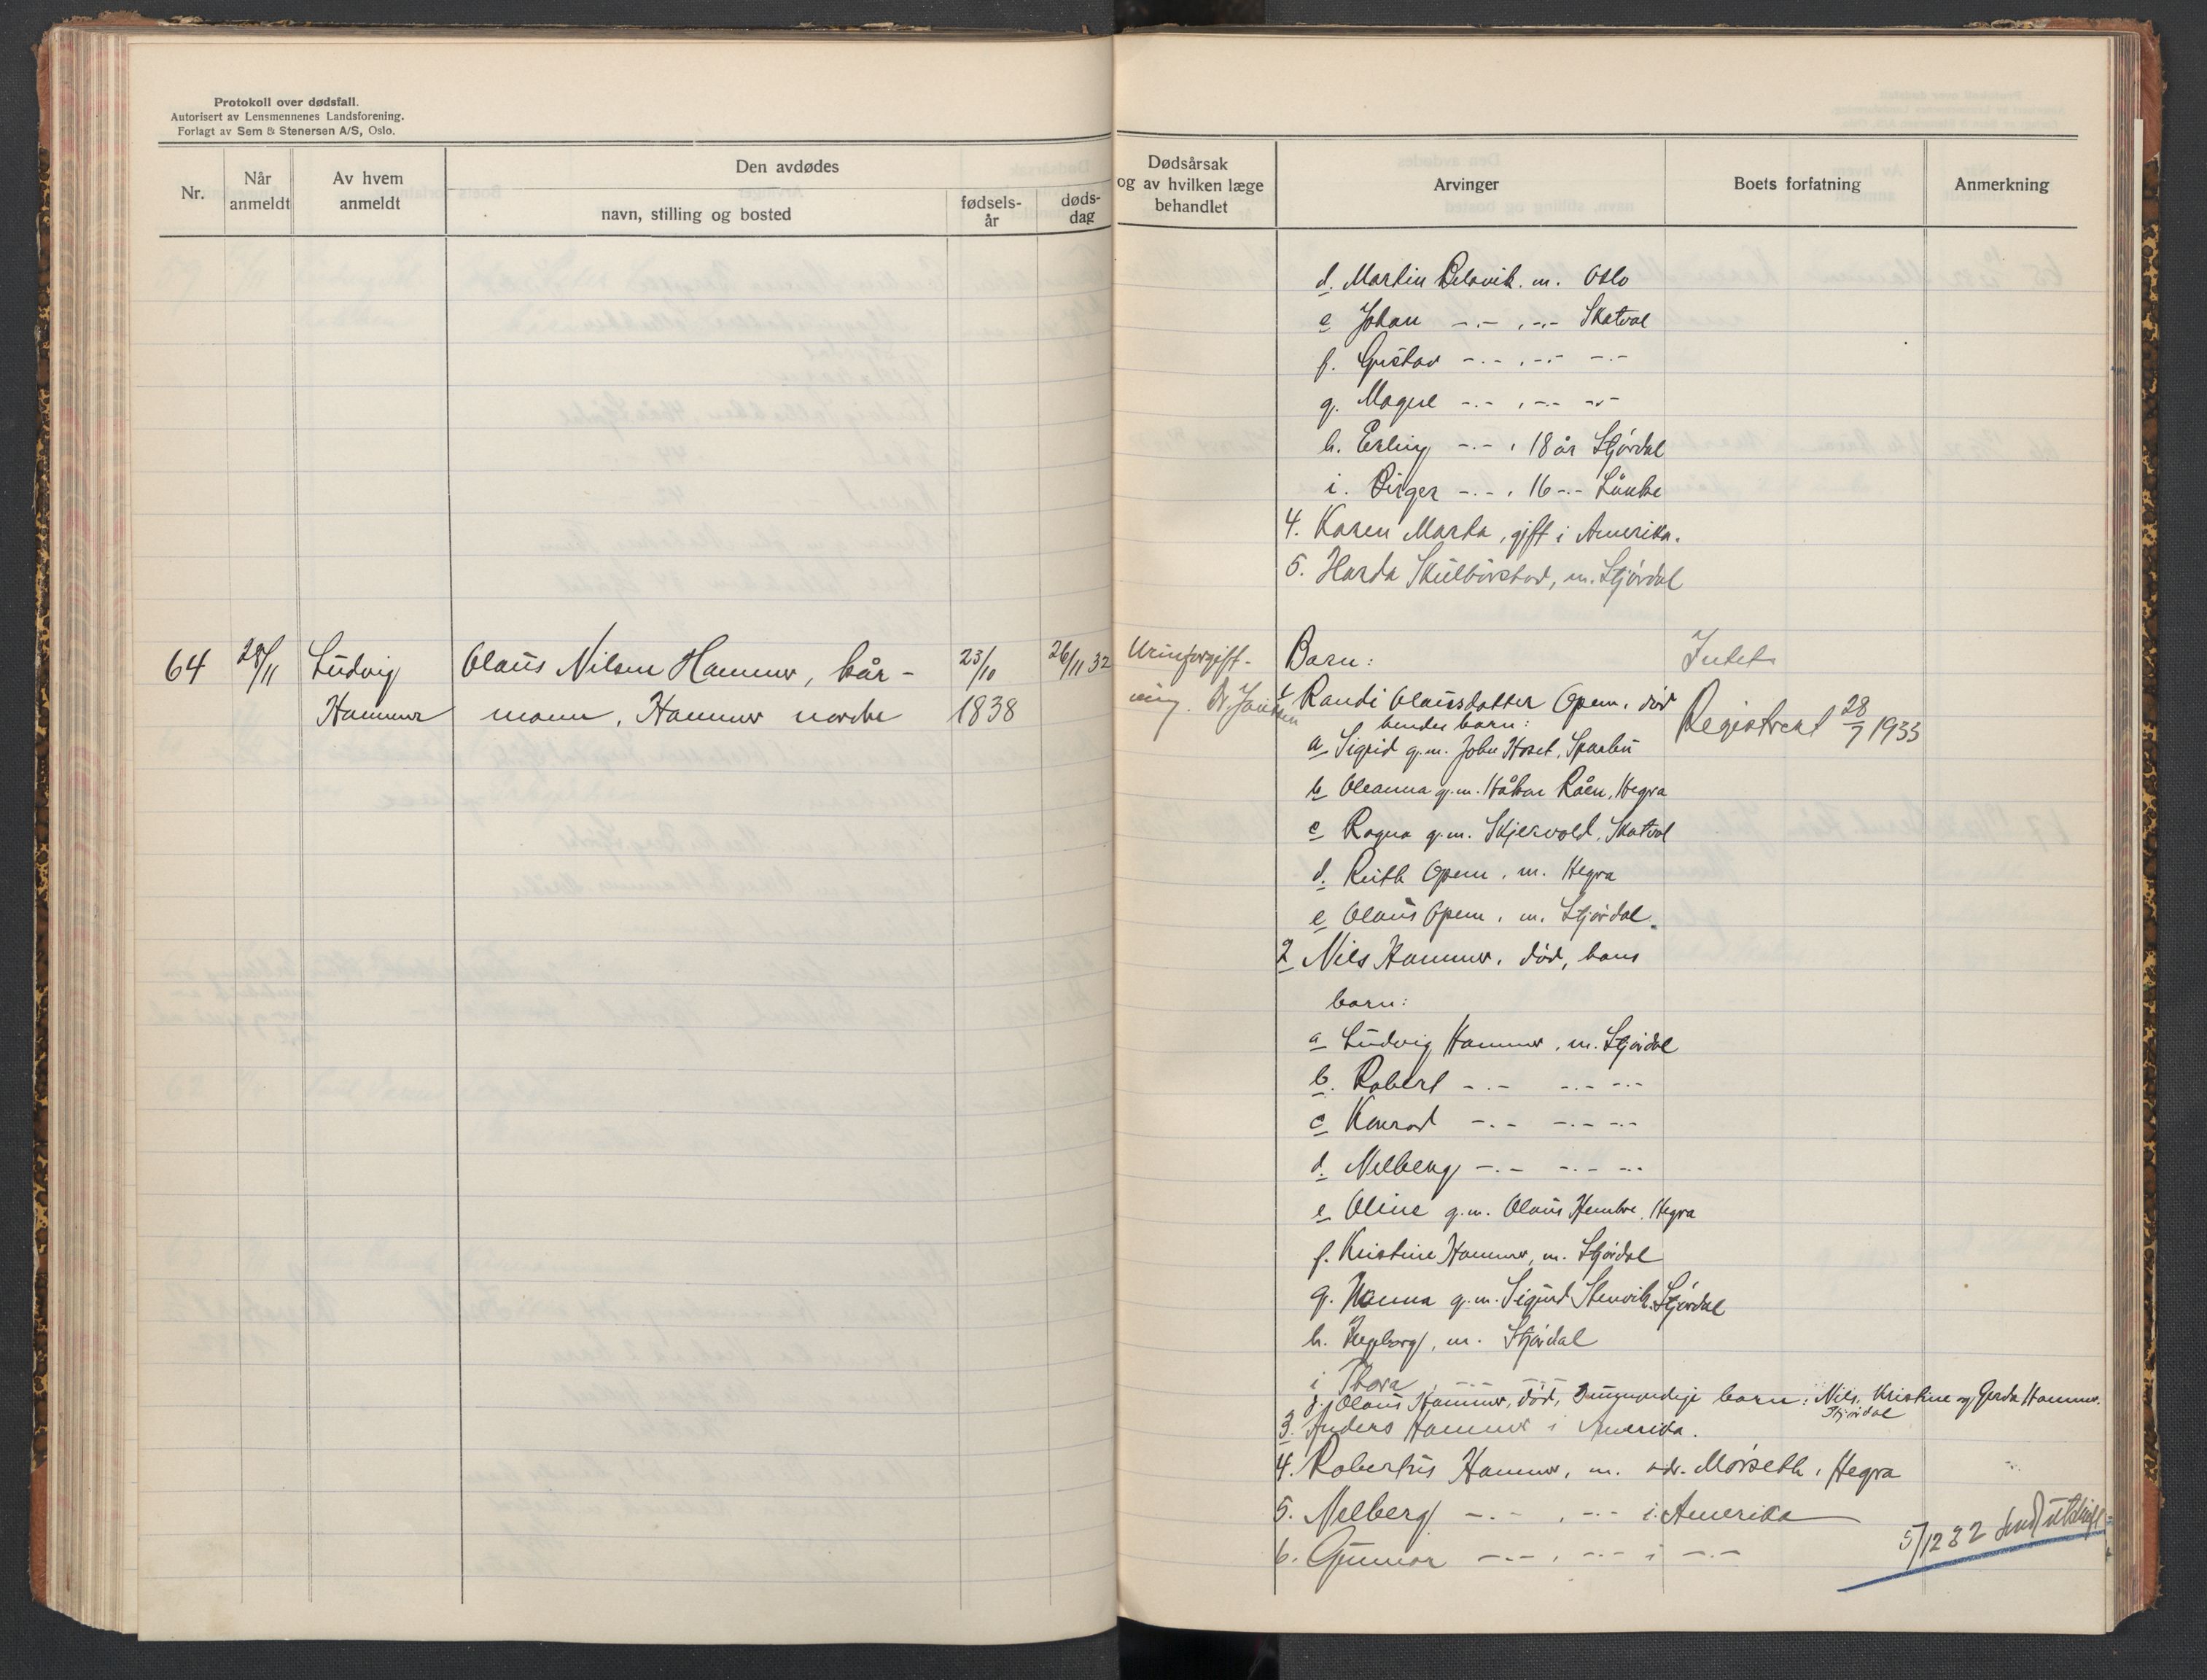 Protokoll over dødsfall.
Autorisert av Lensmennenes Landsforening.
Forlagt av Sem & Stenersen A/S, Oslo.
Nr.
Når anmeldt
Av hvem anmeldt
Den avdødes
navn, stilling og bosted
fødsels-år
døds-dag
Dødsårsak og av hvilken læge behandlet
Arvinger
Boets forfatning
Anmerkning
d. Martin Delavik. m. Oslo
e Johan -.- , -.- Skatval
f. Gustav -.- , -.- -.-
g. Magne -.- , -.- -.-
h. Erling -.- , 18 år Stjørdal
i. Birger -.- , 16 -.- Lånke
4. Karen Marta, gift i Amerika.
5. Harda Skulbørstad, m. Stjørdal
64 28/11 Ludvig Olaus Nilsen Hammer, kår- 23/10 26/11 32 Urinforgift- Barn: Intet
Hammer mann, Hammer nordre 1838 ning. Dr. Jansen
1 Randi Olausdatter Opem, død
hendes barn: Registrert 28/7 1933
a Sigrid g.m. John Hoset, Sparbu
b Oleanna g.m. Håkon Råen, Hegra
c Ragna g.m. Skjervold, Skatval
d. Ruth Opem, m. Hegra
e Olaus Opem, m. Stjørdal.
2 Nils Hammer, død, hans
barn:
a Ludvig Hammer, m. Stjørdal
b. Robert -.- -.- -.-
c Konrad -.- -.- -.-
d. Nelberg -.- -.- -.-
e Oline g.m. Olaus Hembre, Hegra
f. Kristine Hammer, m. Stjørdal
g. Hanna g.m. Sigurd Stenvik. Stjørdal
h. Ingeborg, m. Stjørdal
i Thora, -.- -.-
j. Olaus Hammer, død, 3 umyndige barn: Nils, Kristine og Gerda Hammer.
Stjørdal
3. Anders Hammer i Amerika.
4. Robertus Hammer, m. adr. Mørseth, Hegra
5. Nelberg -.- , -.- i Amerika
6. Gunnar -.- , -.- i -.-
5/12 32 send utskrift